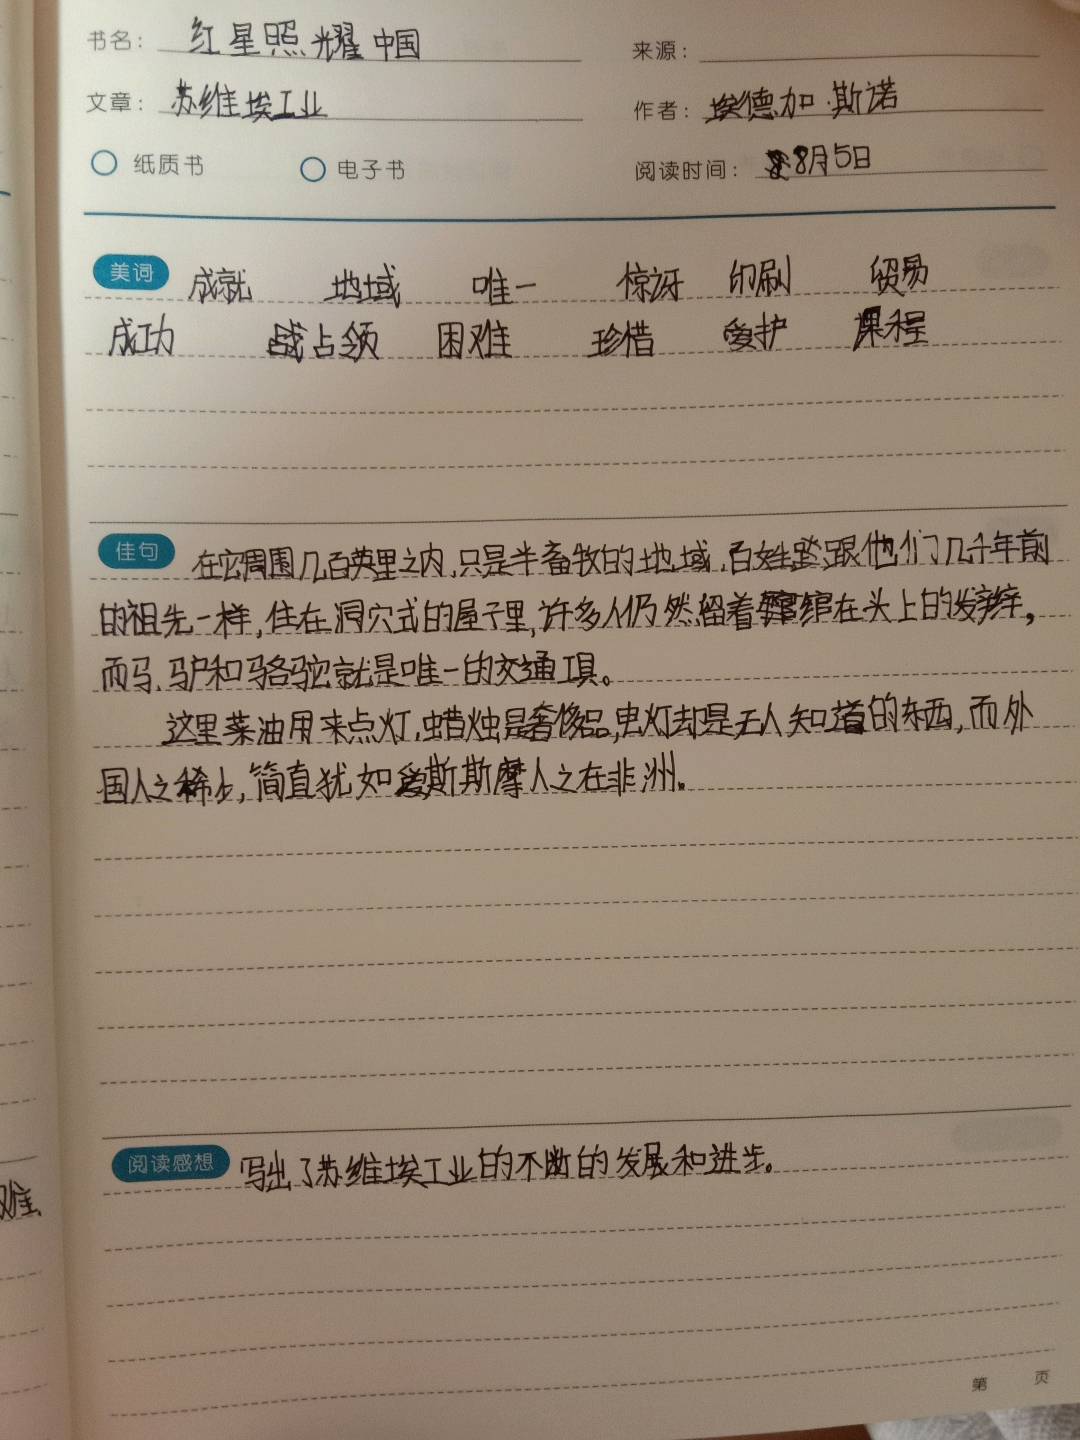 书名: 红星照耀中国
来源:
文章: 苏维埃工业
作者: 埃德加·斯诺
纸质书 电子书 阅读时间: 8月5日
美词 成就 地域 唯一 惊讶 印刷 贸易
成功 战占领 困难 珍惜 爱护 课程
佳句 在它周围几百英里之内,只是半畜牧的地域,百姓跟他们几千年前
的祖先一样,住在洞穴式的屋子里,许多人仍然留着绾在头上的发辫,
而马、驴和骆驼就是唯一的交通工具。
这里菜油用来点灯,蜡烛是奢侈品,电灯却是无人知道的东西,而外
国人之稀少,简直犹如爱斯斯摩人之在非洲。
阅读感想 写出了苏维埃工业的不断的发展和进步。
难、
第 页